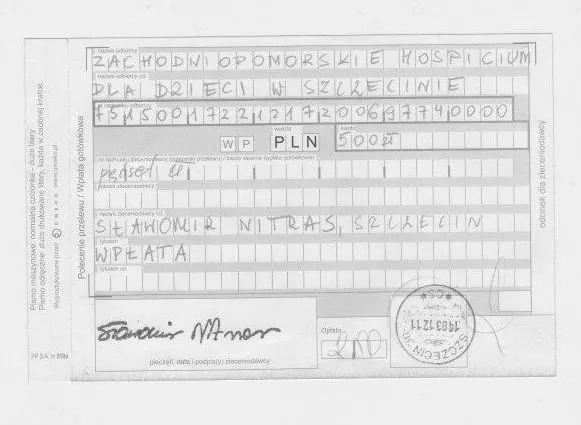 nazwa odbiorcy
ZACHODNIOPOMORSKIE HOSPICIUM
nazwa odbiorcy cd.
DLA DZIECI W SZCZECINIE
nr rachunku odbiorcy
75150017221217200697740000
waluta
kwota
W P PLN 500zł
nr rachunku zleceniodawcy (polecenie przelewu) / kwota słownie (wpłata gotówkowa)
pięćset zł
nazwa zleceniodawcy
nazwa zleceniodawcy cd.
SŁAWOMIR NITRAS, SZCZECIN
tytułem
WPŁATA
tytułem cd.
Opłata
2,00
pieczęć, data i podpis(y) zleceniodawcy
SZCZECIN
14.03.12.11
*CS*
Polecenie przelewu / Wpłata gotówkowa
odcinek dla zleceniodawcy
Pismo maszynowe: normalna czcionka - duże litery
Pismo odręczne: duże drukowane litery, każda w osobnej kratce.